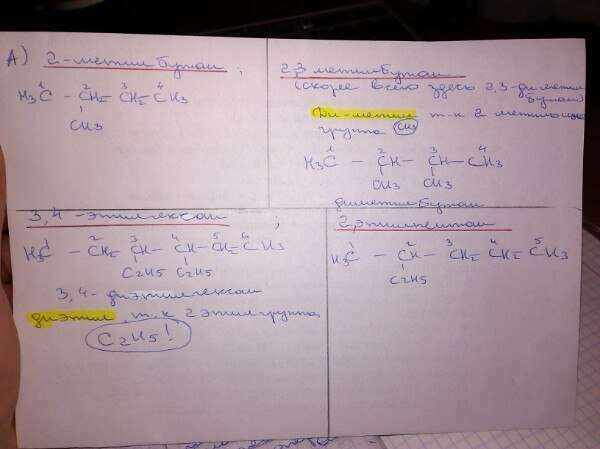 А) 2-метилбутан ;
1 2 3 4
H3C - CH2 - CH2 - CH3
CH3
2,3 метилбутан
(скорее всего здесь 2,3-диметил
бутан)
Ди-метил т-к 2 метильн
группа CH3
1 2 3 4
H3C - CH - CH - CH3
CH3 CH3
диметилбутан
3,4-этилгексан ;
1 2 3 4 5 6
H3C - CH2 - CH - CH - CH2 - CH3
C2H5 C2H5
3,4-диэтилгексан
диэтил, т.к 2 этил группа
C2H5!
2,этилпентан
1 2 3 4 5
H3C - CH - CH2 - CH2 - CH3
C2H5